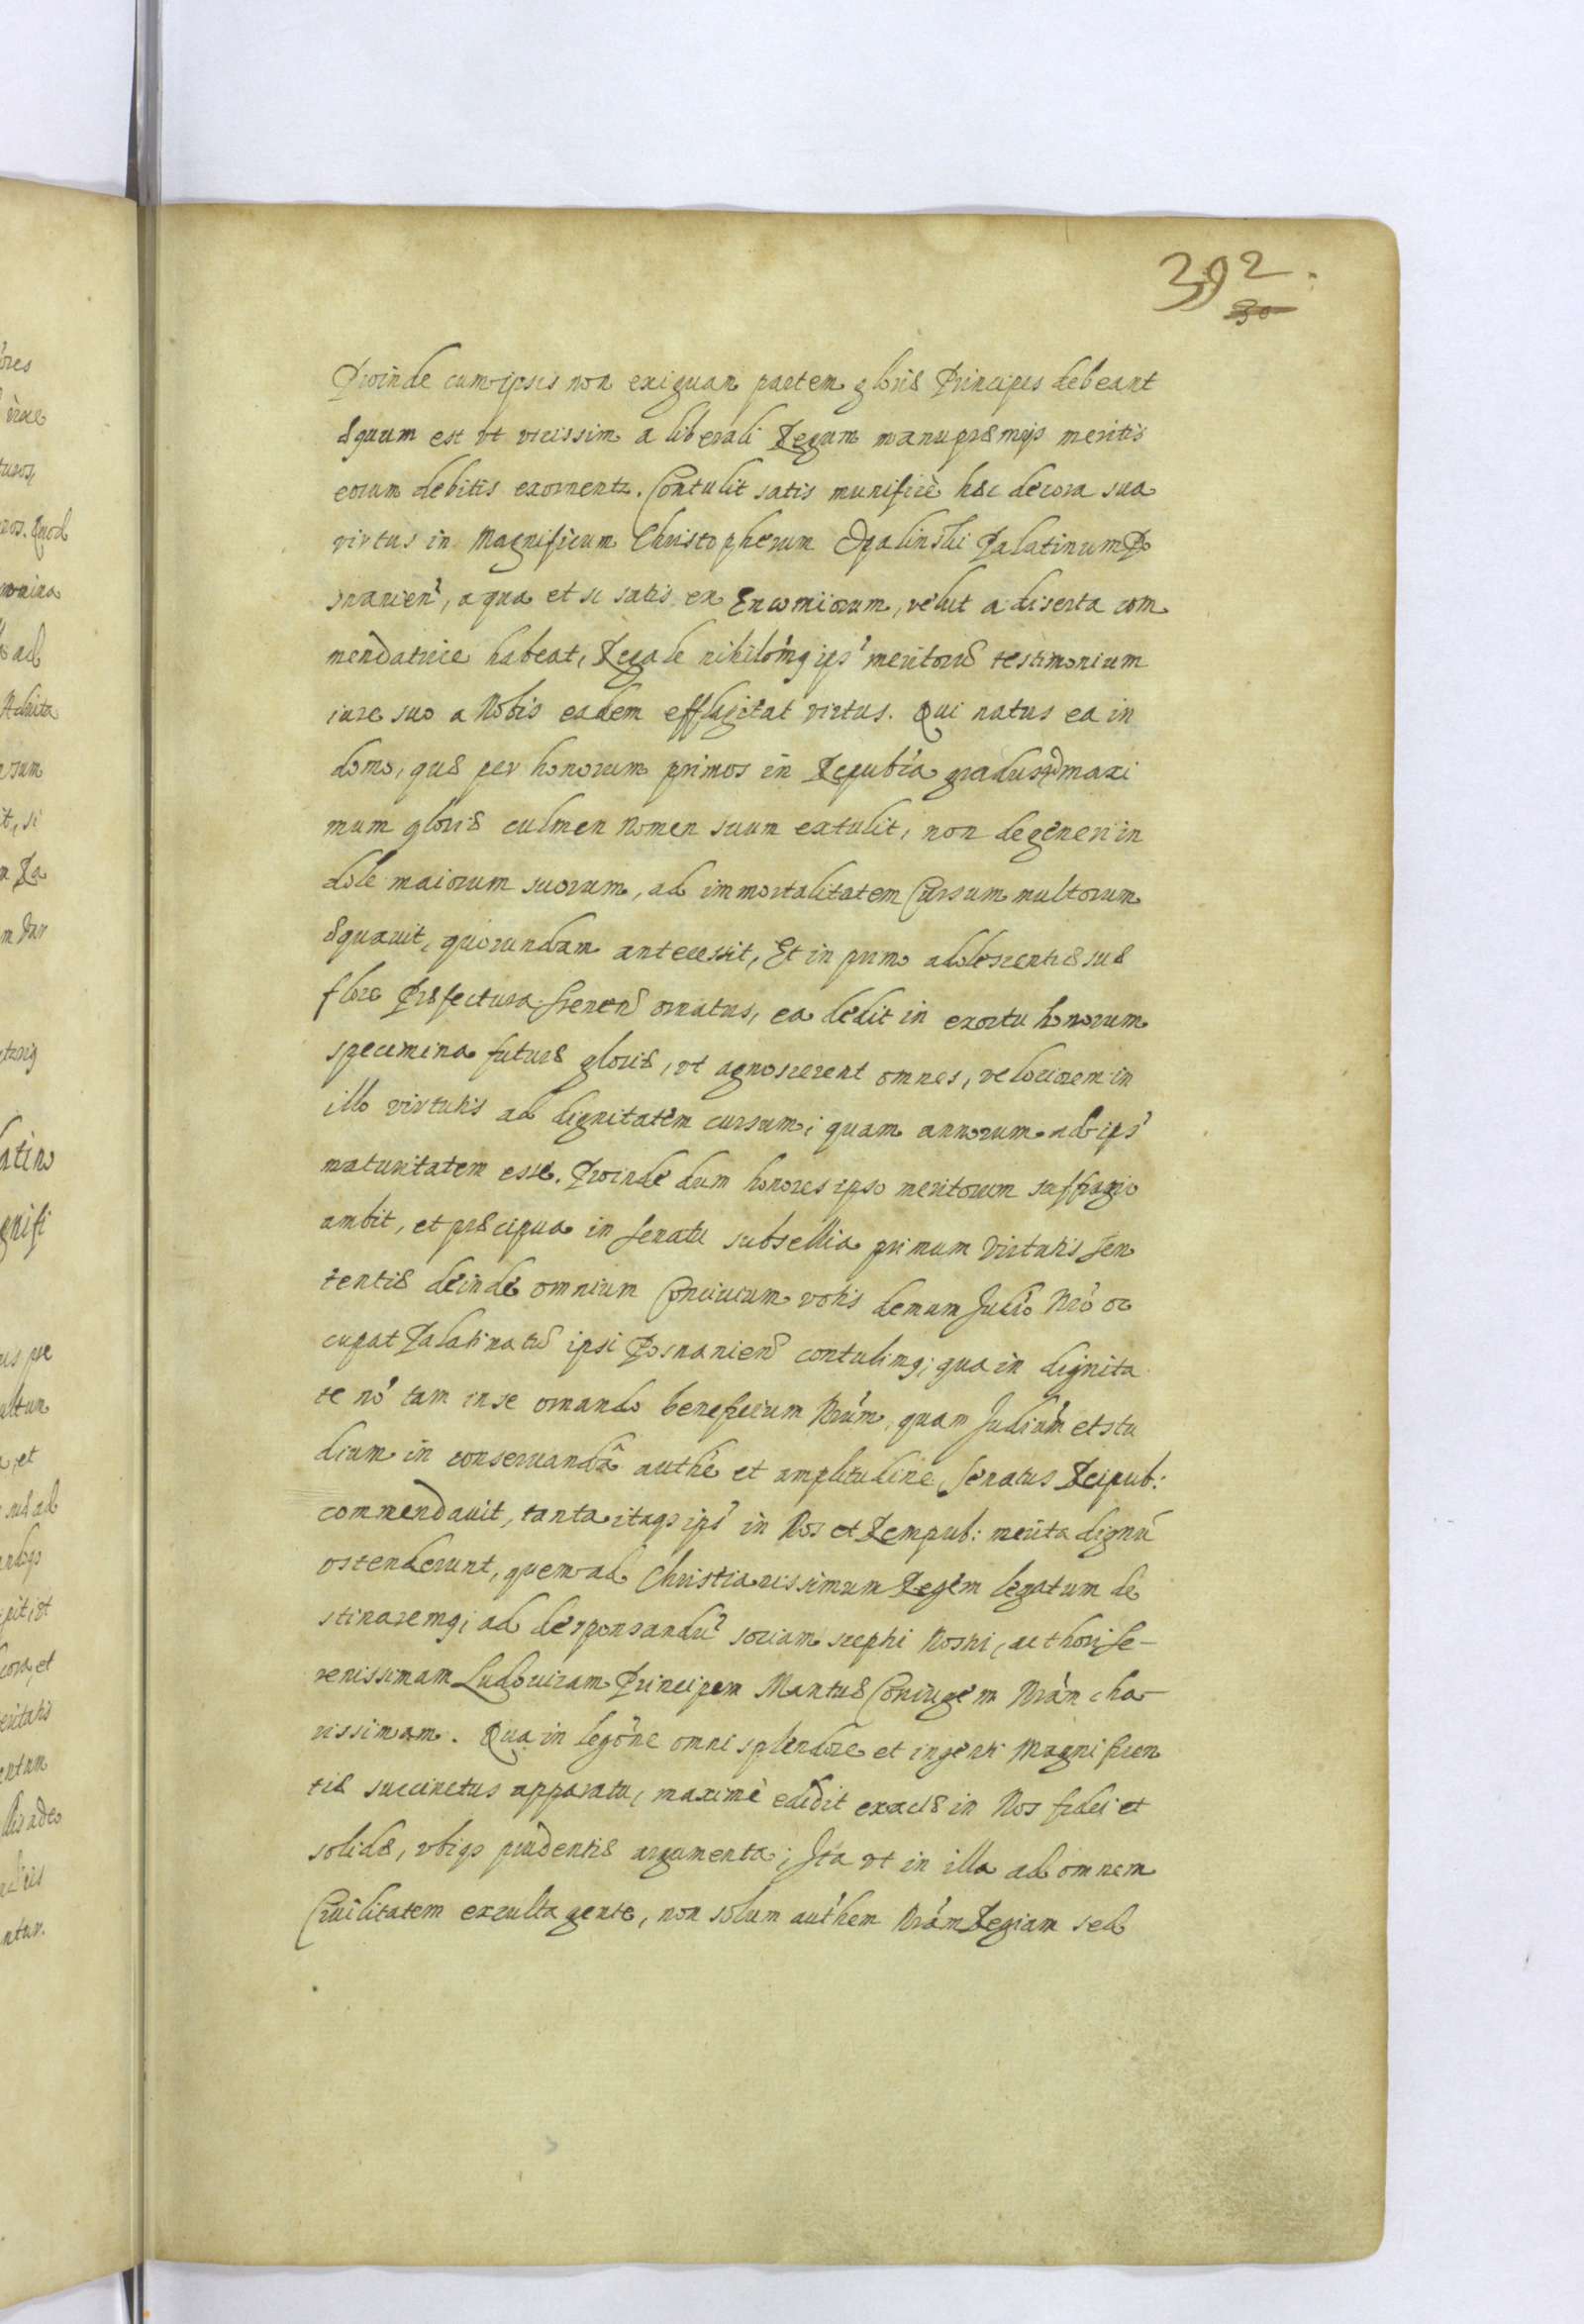 392.
30
Proinde cum ipsis non exiguam partem gloriæ Principes debeant
æquum est vt vicissim a liberali Regum manu præmijs meritis
eorum debitis exornentr. Contulit satis munificè hæc decora sua
virtus in Magnificum Christopherum Opalinski Palatinum Po
snanien̄, a qua et si satis ex Encomiorum, velut a diserta com
mendatrice habeat, Regale nihilomꝰ ips' meritorū testimonium
iure suo a Nobis eadem efflagitat virtus. Qui natus ea in
domo, quæ per honorum primos in Republ'a gradus, ad maxi
mum gloriæ culmen nomen suum extulit, non degeneri in
dole maiorum suorum, ad immortalitatem Cursum multorum
æquauit, quorundam antecessit, Et in primo adolescentiæ suæ
flore Præfectura Sremen̄ ornatus, ea dedit in exortu honorum
specimina futuræ gloriæ, vt agnoscerent omnes, velociorem in
illo virtutis ad dignitatem cursum, quam annorum ad ips'
maturitatem esse. Proinde dum honores ipso meritorum suffragio
ambit, et præcipua in Senatu subsellia primum Virtutis sen
tentiæ deinde omnium Conciuium votis demum Judīo Nrō oc
cupat Palatinatū ipsi Posnanien̄ contulimꝰ, qua in dignita
te nō tam in se ornando beneficium Nrūm, quam Judiūm et stu
dium in conseruandā authē et amplitudine Senatus Reipub:
commendauit, tanta itaqꝫ ips' in Nos et Rempub: merita dignū
ostenderunt, quem ad Christianissimum Regem legatum de
stinaremꝰ, ad desponsandū sociam sceptri Nostri, ac thori Se-
renissimam Ludouicam Principem Mantuæ Coniugem Nrām cha-
rissimam. Qua in legōne omni splendore et ingenti Magnificen
tiæ succinctus apparatu, maximè edidit exactæ in Nos fidei et
solidæ, vbiqꝫ prudentiæ argumenta, Ita vt in illa ad omnem
Ciuilitatem exculta gente, non solum authem Nrām Regiam sed